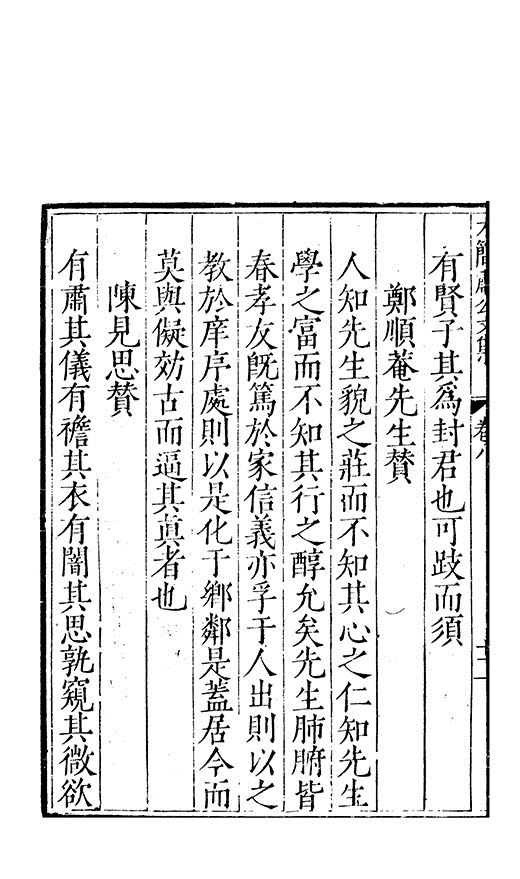 有賢子其爲封君也可跂而須
鄭順菴先生贊
人知先生貌之莊而不知其心之仁知先生
學之富而不知其行之醇允矣先生肺腑皆
春孝友旣篤於家信義亦孚于人出則以之
教於庠序處則以是化于鄉鄰是蓋居今而
莫與儗效古而逼其眞者也
陳見思贊
有肅其儀有襜其衣有闇其思孰窺其微欲